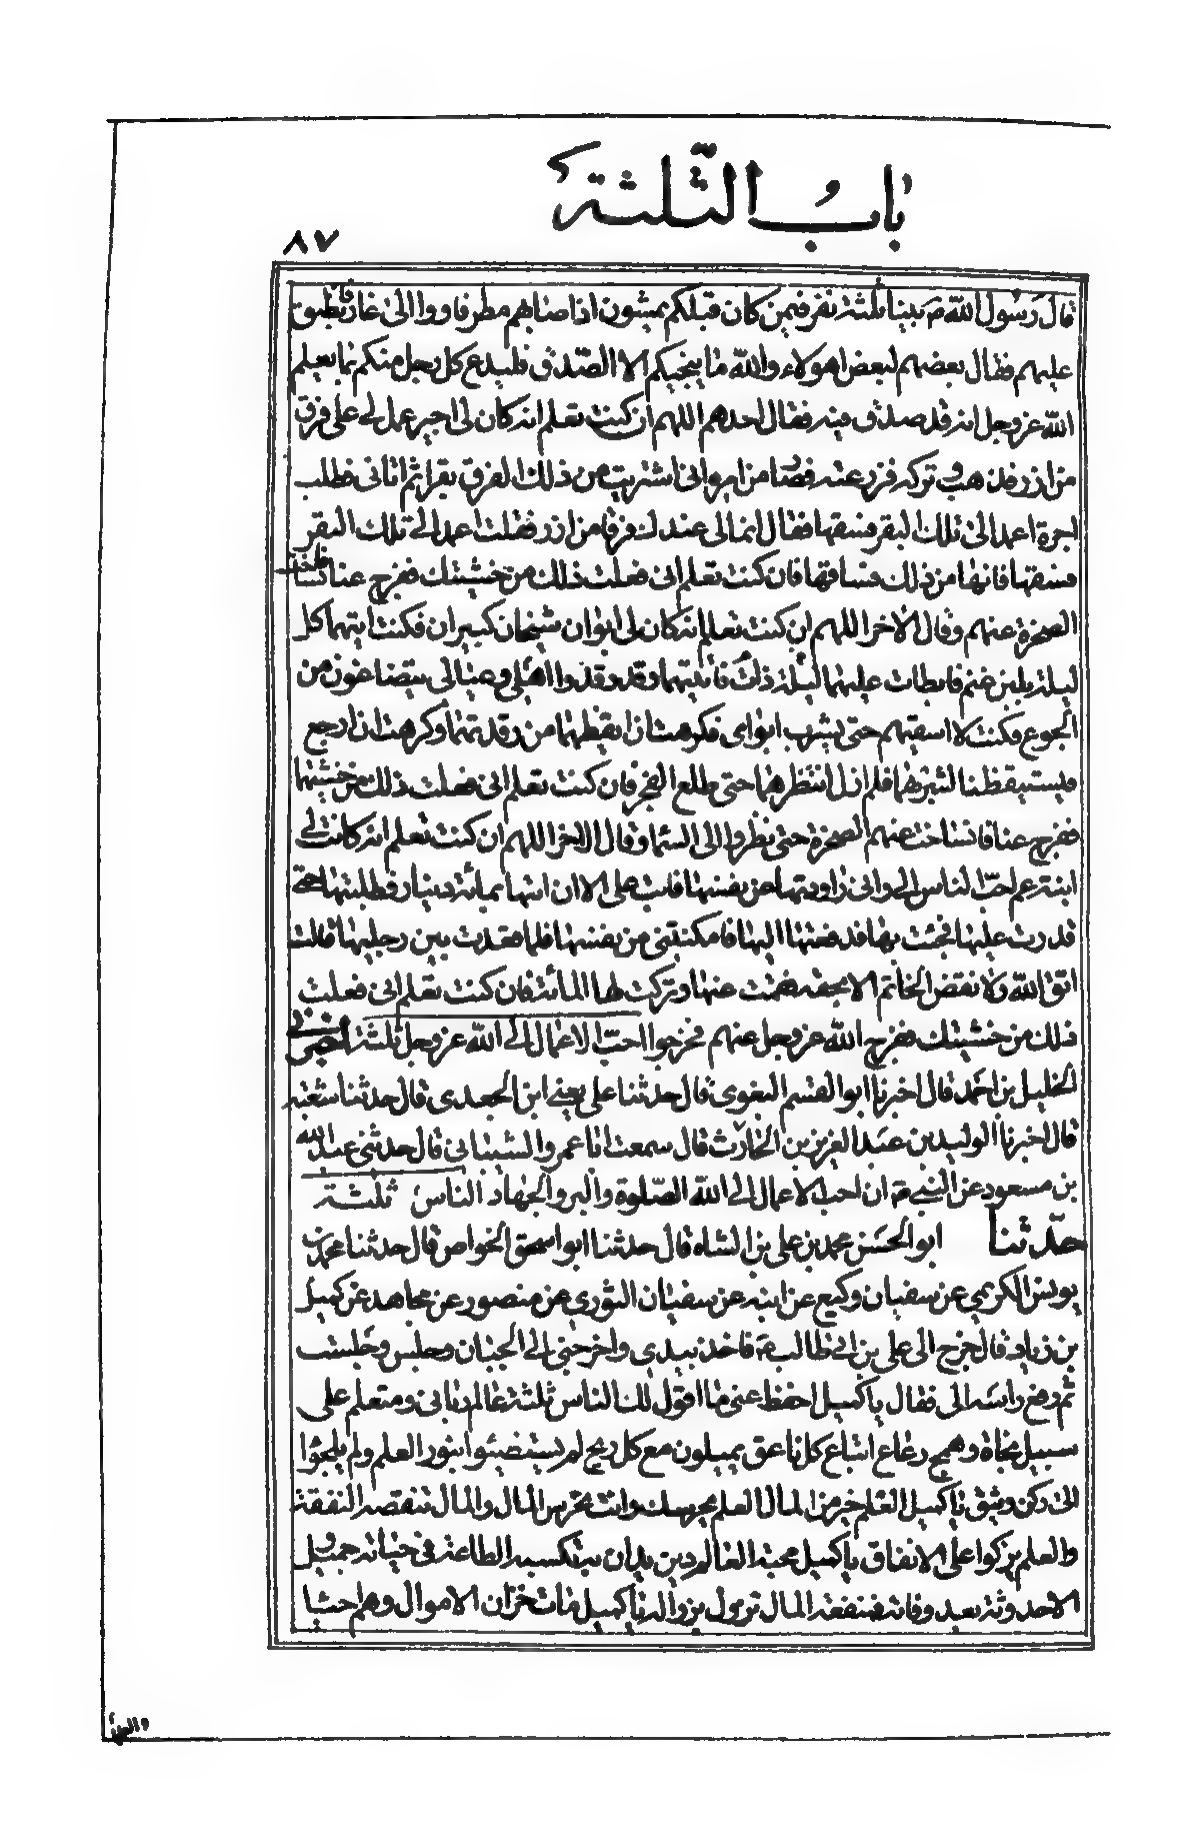 باب الثلثة
٨٧
قال رسول الله ص بينا ثلثة نفر فيمن كان قبلكم يمشون اذا صابهم مطر فاووا الى غار فانطبق
عليهم فقال بعضهم لبعض يا هؤلاء والله ما ينجيكم الا الصدق فليدع كل رجل منكم بما يعلم
الله عز وجل انه قد صدق فيه فقال احدهم اللهم ان كنت تعلم انه كان لى اجير عمل لى على فرق
من ارز فذهب وتركه فزرعته فصار من امره انى اشتريت من ذلك الفرق بقرا ثم اتانى فطلب
اجره اعمد الى تلك البقر فسقها فقال انما لى عندك فرق من ارز فقلت اعمد الى تلك البقر
فسقها فانها من ذلك فساقها فان كنت تعلم انى فعلت ذلك من خشيتك ففرج عنا فانساخت
الصخرة عنهم وقال الاخر اللهم ان كنت تعلم انه كان لى ابوان شيخان كبيران فكنت اتيهما كل
ليلة بلبن غنم فابطات عليهما ليلة ذلك فاتيتهما وقد رقدوا اهلى وعيالى يتضاغون من
الجوع فكنت لا اسقيهم حتى يشرب ابواى فكرهت ان ايقظهما من رقدتهما وكرهت ان ارجع
فيستيقظنا لشربهما فلم ازل انتظرهما حتى طلع الفجر فان كنت تعلم انى فعلت ذلك من خشيتك
ففرج عنا فانساخت عنهم الصخرة حتى نظروا الى السماء وقال الاخر اللهم ان كنت تعلم انه كانت لى
ابنة عم احب الناس الى وانى راودتها عن نفسها فابت على الا ان اتيها بمائة دينار فطلبتها حتى
قدرت عليها فجئت بها فدفعتها اليها فامكنتنى من نفسها فلما قعدت بين رجليها قالت
اتق الله ولا تفض الخاتم الا بحقه فقمت عنها وتركت لها المائة فان كنت تعلم انى فعلت
ذلك من خشيتك ففرج الله عز وجل عنهم فخرجوا احب الاعمال الى الله عز وجل ثلثة اخبرنى
الخليل بن احمد قال اخبرنا ابو القسم البغوى قال حدثنا على يعنى ابن الجعدى قال حدثنا شعبة
قال اخبرنا الوليد بن عبد العزيز بن الحارث قال سمعت ابا عمرو الشيبانى قال حدثنى عبد الله
بن مسعود عن النبى ص ان احب الاعمال الى الله الصلوة والبر والجهاد الناس ثلثة
حدثنا ابو الحسن محمد بن على بن الشاه قال حدثنا ابو اسحق الخواص قال حدثنا محمد بن
يونس الكريمى عن سفيان وكيع عن ابيه عن سفيان الثورى عن منصور عن مجاهد عن كميل
بن زياد قال خرج الى على بن ابى طالب ع فاخذ بيدى واخرجنى الى الجبان وجلس وجلست
ثم رفع راسه الى فقال يا كميل احفظ عنى ما اقول لك الناس ثلثة عالم ربانى ومتعلم على
سبيل نجاة وهمج رعاع اتباع كل ناعق يميلون مع كل ريح لم يستضيئوا بنور العلم ولم يلجئوا
الى ركن وثيق يا كميل العلم خير من المال العلم يحرسك وانت تحرس المال والمال تنقصه النفقة
والعلم يزكوا على الانفاق يا كميل محبة العالم دين يدان به تكسبه الطاعة فى حياته وجميل
الاحدوثة بعد وفاته فمنفعة المال تزول بزواله يا كميل مات خزان الاموال وهم احيا
والعلما